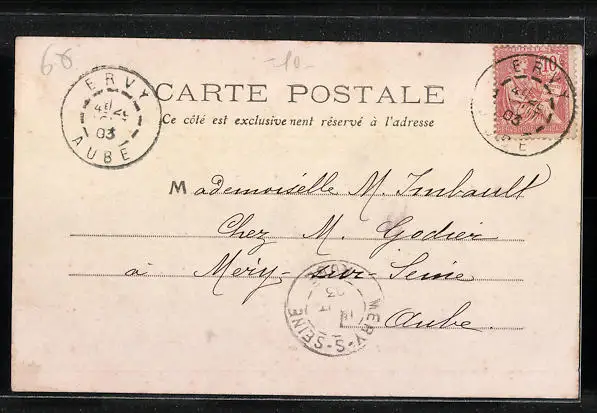 66
-10-
ERVY
AUBE
03
10
ERVY
03
CARTE POSTALE
Ce côté est exclusivement réservé à l'adresse
Mademoiselle M. Imbault
Chez M. Godier
à Méry-sur-Seine
Aube.
MERY-S-SEINE